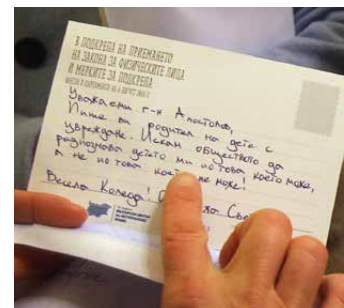 В ПОДКРЕПА НА ПРИЕМАНЕТО
НА ЗАКОНА ЗА ФИЗИЧЕСКИТЕ ЛИЦА
И МЕРКИТЕ ЗА ПОДКРЕПА
Уважаеми г-н Апостолов,
Пише ви родител на дете с
увреждане. Искам обществото да
разпознава детето ми по това което може,
а не по това което не може!
Весела Коледа!